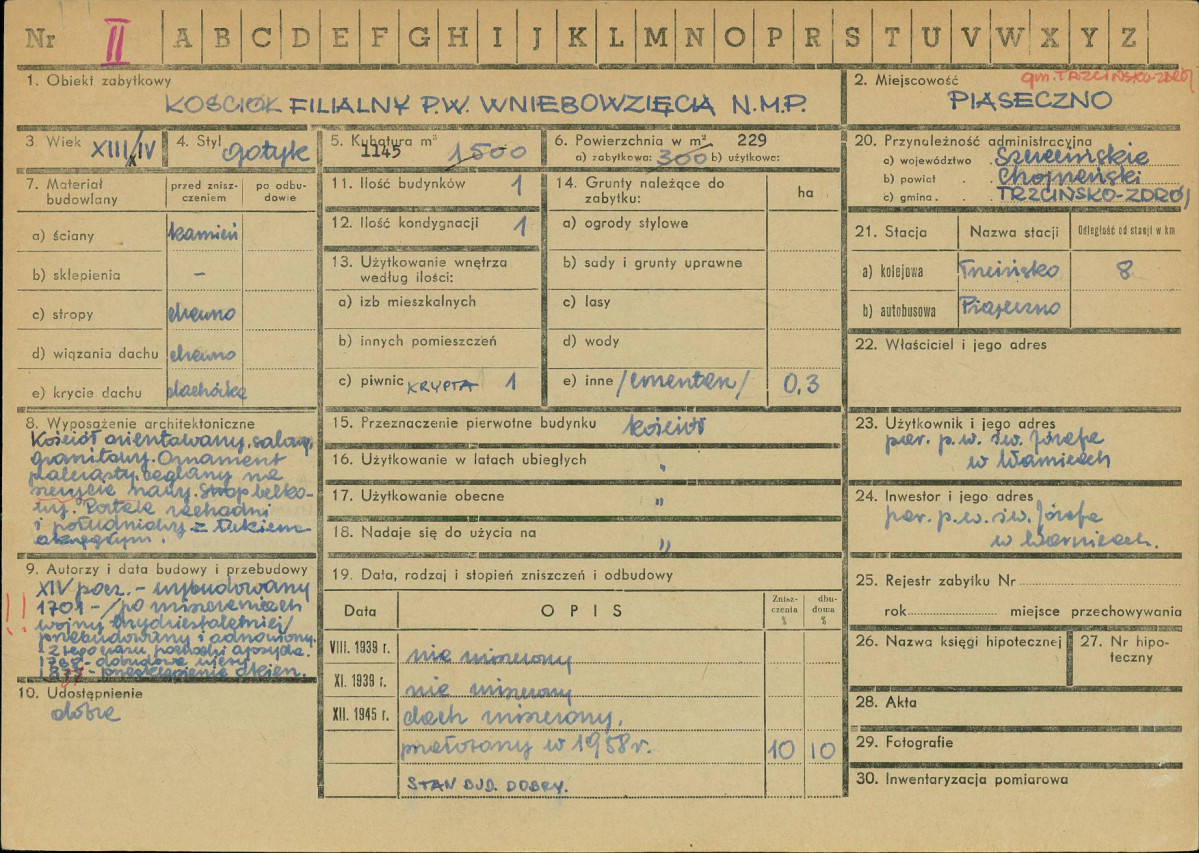 Nr II A B C D E F G H I J K L M N O P R S T U V W X Y Z
1. Obiekt zabytkowy
KOŚCIÓŁ FILIALNY P.W. WNIEBOWZIĘCIA N.M.P.
2. Miejscowość
gm. TRZCIŃSKO-ZDRÓJ
PIASECZNO
3. Wiek XIII/XIV
4. Styl gotyk
5. Kubatura m³ 1500
1145
6. Powierzchnia w m² 229
a) zabytkowa: 300 b) użytkowe:
7. Materiał budowlany
przed zniszczeniem
po odbudowie
a) ściany kamień
b) sklepienia -
c) stropy drewno
d) wiązania dachu drewno
e) krycie dachu dachówka
8. Wyposażenie architektoniczne
Kościół orientowany, salowy,
granitowy. Ornament
ceglany na
nawy. Strop belko-
wy. Portale zachodni
i południowy z łukiem
okrągłym.
9. Autorzy i data budowy i przebudowy
XIV pocz. - wybudowany
!! 1701 - /po zniszczeniach
wojny trzydziestoletniej/
przebudowany i odnowiony.
Z tego czasu pochodzi apsyda.
dobudowa wieży
okien.
10. Udostępnienie
dobre
11. Ilość budynków 1
12. Ilość kondygnacji 1
13. Użytkowanie wnętrza
według ilości:
a) izb mieszkalnych
b) innych pomieszczeń
c) piwnic KRYPTA 1
14. Grunty należące do
zabytku:
ha
a) ogrody stylowe
b) sady i grunty uprawne
c) lasy
d) wody
e) inne /cmentarz/ 0,3
15. Przeznaczenie pierwotne budynku kościół
16. Użytkowanie w latach ubiegłych "
17. Użytkowanie obecne "
18. Nadaje się do użycia na "
19. Data, rodzaj i stopień zniszczeń i odbudowy
Data
OPIS
Zniszczenia %
dbudowa %
VIII. 1939 r. nie zniszczony
XI. 1939 r. nie zniszczony
XII. 1945 r. dach zniszczony,
przełożany w 1958 r. 10 10
STAN BUD. DOBRY.
20. Przynależność administracyjna
a) województwo Szczecińskie
b) powiat Chojeński
c) gmina TRZCIŃSKO-ZDRÓJ
21. Stacja
Nazwa stacji
Odległość od stacji w km
a) kolejowa Trzcińsko 8
b) autobusowa Piaseczno
22. Właściciel i jego adres
23. Użytkownik i jego adres
par. p.w. św. Józefa
w Warnicach
24. Inwestor i jego adres
par. p.w. św. Józefa
w Warnicach.
25. Rejestr zabytku Nr
rok miejsce przechowywania
26. Nazwa księgi hipotecznej
27. Nr hipo-
teczny
28. Akta
29. Fotografie
30. Inwentaryzacja pomiarowa